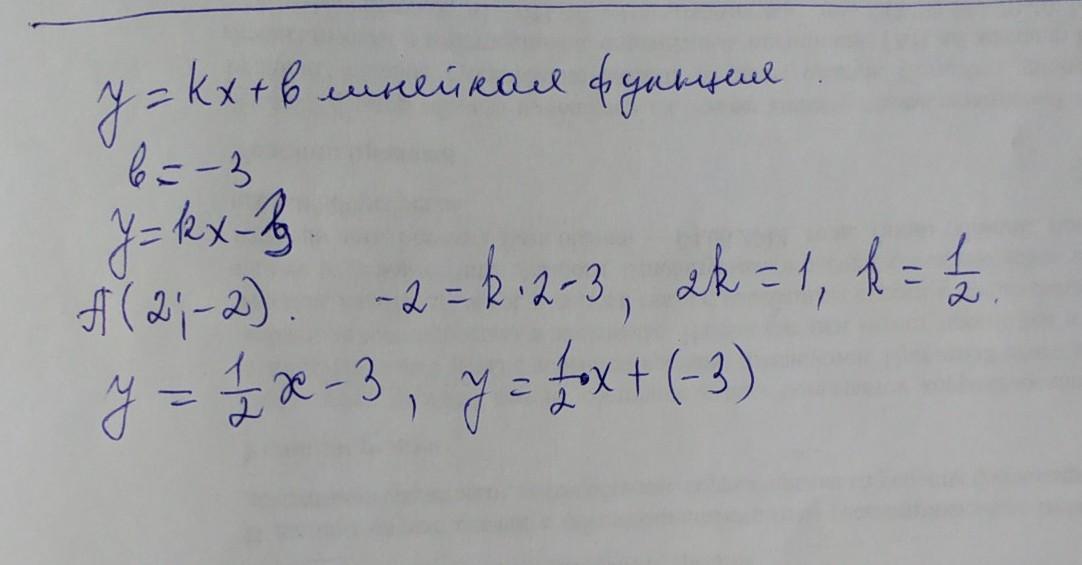 y = kx + b линейная функция.
b = -3
y = kx - 3
A(2; -2). -2 = k·2-3, 2k = 1, k = 1/2.
y = 1/2 x - 3, y = 1/2·x + (-3)